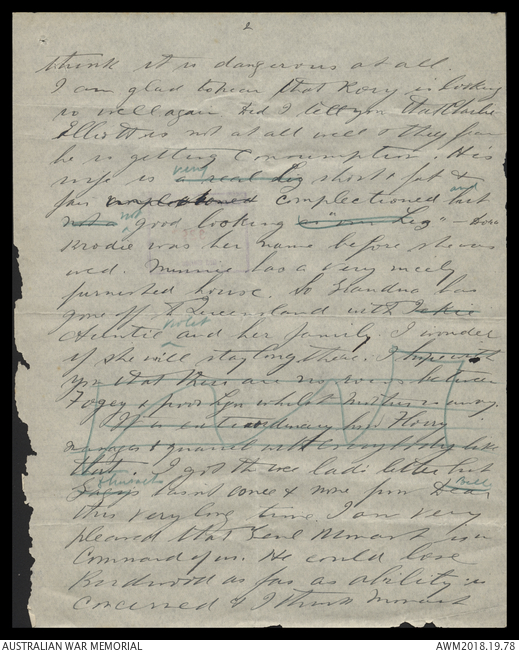 2
think it is dangerous at all.
I am glad to hear that Rory is looking
so well again. Did I tell you that Charlie
Elliott is not at all well & they fear
he is getting Consumption. His
very
wife is a real Lig short & fat & and
fair complectioned but
not a not good looking — Dora
Brodie was her name before she was
wed. Minnie has a very nicely
furnished house. So Grandma has
gone off to Queensland with
Auntie Violet and her family. I wonder
if she will stay long there. I hope with
you that there are no rows between
Fogey & poor Lyn whilst Mother is away.
It is extraordinary how Florry
manages to quarrel with everybody like
that. I got the two lads letter but
hasnt come & none from Bill
this very long time. I am very
pleased that Genl Monash is in
Command of us. He could lose
Birdwood as far as ability is
concerned & I think Monash
AUSTRALIAN WAR MEMORIAL
AWM2018.19.78